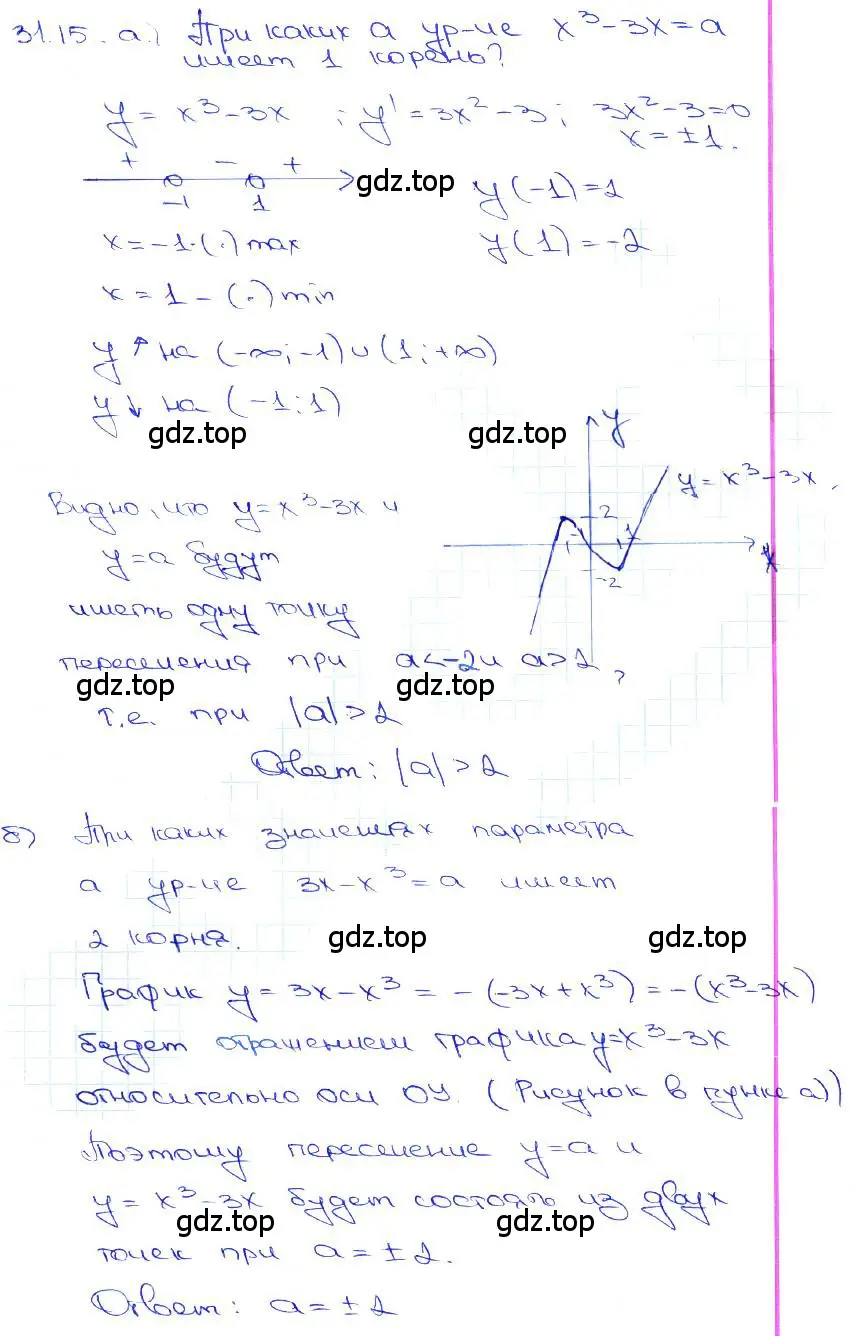 31.15. а.) При каких а ур-ие x³-3x=a
имеет 1 корень?
y = x³-3x ; y' = 3x²-3 ; 3x²-3=0
x = ±1.
+ - +
-1 1
gdz.top
y(-1)=2
x=-1-(.) max
y(1)=-2
x = 1 - (.) min
y ↑ на (-∞;-1)∪(1;+∞)
y ↓ на (-1;1)
gdz.top gdz.top
y
y = x³-3x
2
-1 1
-2
x
Видно, что y=x³-3x и
y=a будут
иметь одну точку
пересечения при a<-2 и a>2,
gdz.top gdz.top
т.е. при |a|>2
Ответ: |a|>2
б) При каких значениях параметра
а ур-ие 3x-x³=a имеет
2 корня.
gdz.top gdz.top
График y = 3x-x³ = -(-3x+x³) = -(x³-3x)
будет отражением графика y=x³-3x
относительно оси OY. (Рисунок в пункте а))
Поэтому пересечение y=a и
y = x³-3x будет состоять из двух
gdz.top gdz.top
точек при a=±2.
Ответ: a=±2